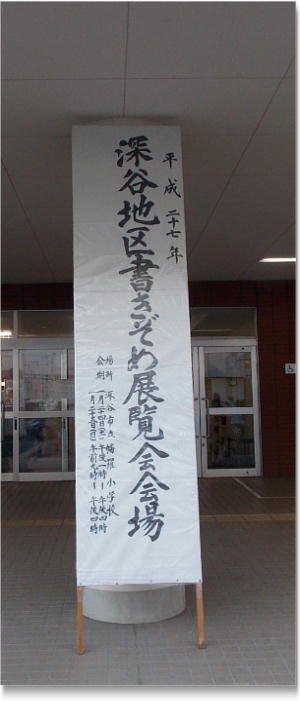 平成二十七年
深谷地区書きぞめ展覧会会場
場所 深谷市立幡羅小学校
会期 一月二十四日(土)午後一時~午後四時
一月二十五日(日)午前九時~午後四時